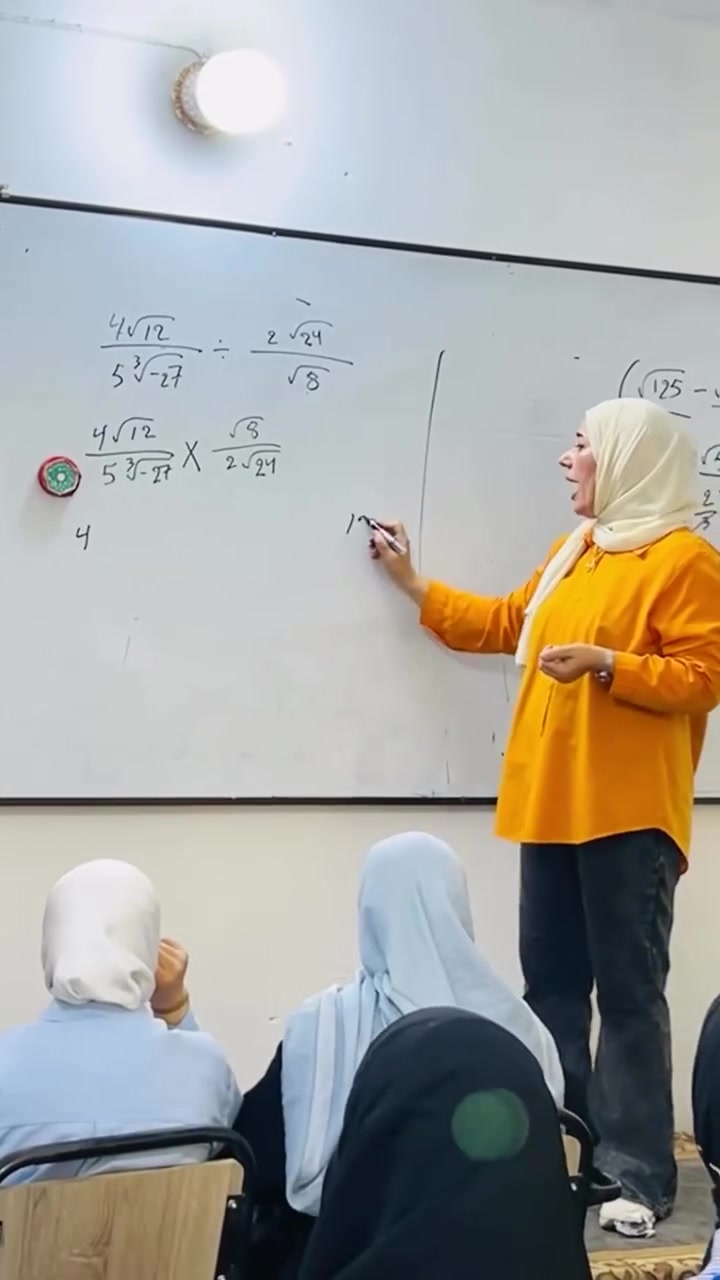 4√12 / 5∛-27 ÷ 2√24 / √8
4√12 / 5∛-27 X √8 / 2√24
4
(√125 -